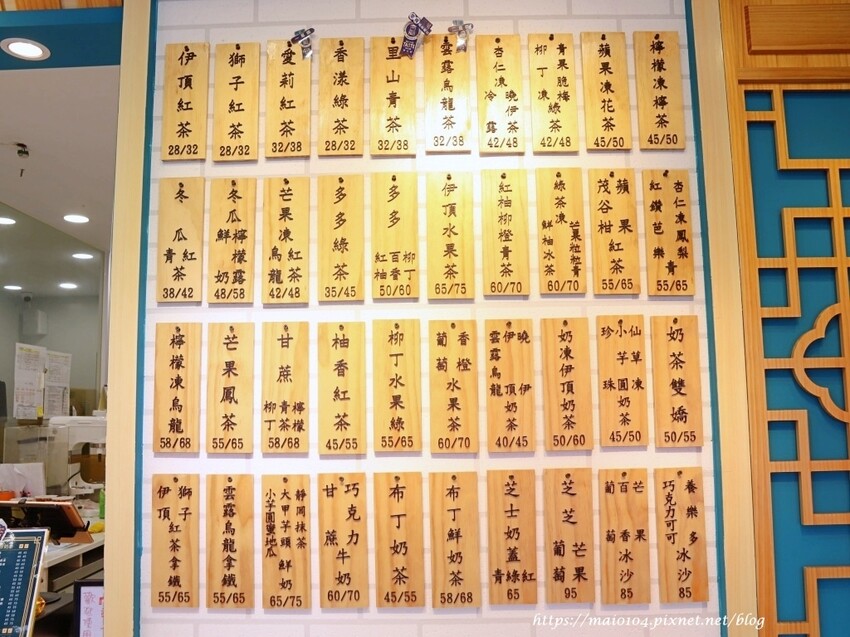 伊頂紅茶
28/32
獅子紅茶
28/32
愛莉紅茶
32/38
香漾綠茶
28/32
里山青茶
32/38
雲露烏龍茶
32/38
杏仁凍冷露
曉伊茶
42/48
青果脆梅
柳丁凍綠茶
42/48
蘋果凍花茶
45/50
檸檬凍檸茶
45/50
冬瓜青茶
紅
38/42
冬瓜檸檬露
鮮奶
48/58
芒果凍紅茶
烏龍
42/48
多多綠茶
35/45
多多
紅柚
百香
柳丁
50/60
伊頂水果茶
65/75
紅柚柳橙青茶
60/70
綠茶凍
芒果粒粒青
鮮柚冰茶
60/70
蘋果
茂谷柑
紅茶
55/65
杏仁凍鳳梨
紅鑽芭樂
青
55/65
檸檬凍烏龍
58/68
芒果鳳茶
55/65
甘蔗
柳丁
青茶
檸檬
58/68
柚香紅茶
45/55
柳丁水果綠
55/65
香橙
葡萄
水果茶
60/70
曉伊
伊頂
雲露烏龍
奶茶
40/45
奶凍伊頂奶茶
50/60
仙草凍
小芋圓
珍珠
奶茶
45/50
奶茶雙嬌
50/55
獅子
伊頂
紅茶拿鐵
55/65
雲露烏龍拿鐵
55/65
靜岡抹茶
大甲芋頭
小芋圓蜜地瓜
鮮奶
65/75
巧克力
甘蔗
牛奶
60/70
布丁奶茶
45/55
布丁鮮奶茶
58/68
芝士奶蓋
青綠紅
65
芝芝
葡萄
芒果
95
芒果
百香
葡萄
冰沙
85
養樂多
巧克力可可
冰沙
85
https://maio104.pixnet.net/blog